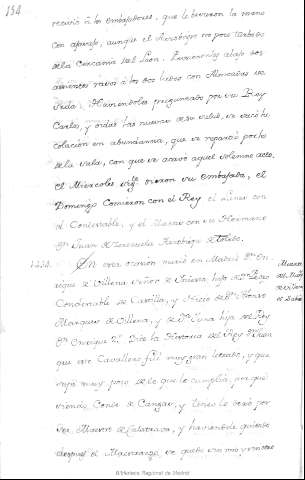 154
recivió à los embajadores, que le besaron la mano
con aplauso, aunque el Arzobispo no poco turbado
de la cercania del Leon.
asientos rasos à los dos lados con Almoadas de
seda; Haviendoles preguntado por su Rey
Carlos, y oidas las nuevas de su salud, se sacó la
colacion en abundancia, que se repartió por to
da la sala, con que se acavo aquel solemne acto.
el Miercoles sig.te oieron su embajada, el
Domingo Comieron con el Rey el Lunes con
el Condestable, y el Martes con su Hermano
D.n Juan de Zerezuela Arzobispo de Toledo.
En esta ocasion murio en Madrid D.n En
rique de Villena Señor de Iniesta hijo de D.n Pedro
Condestable de Castilla, y Nieto de D.n Alonso
Marques de Villena, y de D.ª Juana hija del Rey
D.n Enrique 2.º Dice la Historia del Rey D.n Juan
que este Cavallero fue muy gran letrado, y que
supo muy poco de lo que le cumplia, porque
siendo Conde de Cangas, y Tineo lo dexó por
ser Maestre de Calatrava, y haviendole quitado
despues el Maestrazgo, se quedo sin uno y sin otro
Biblioteca Regional de Madrid